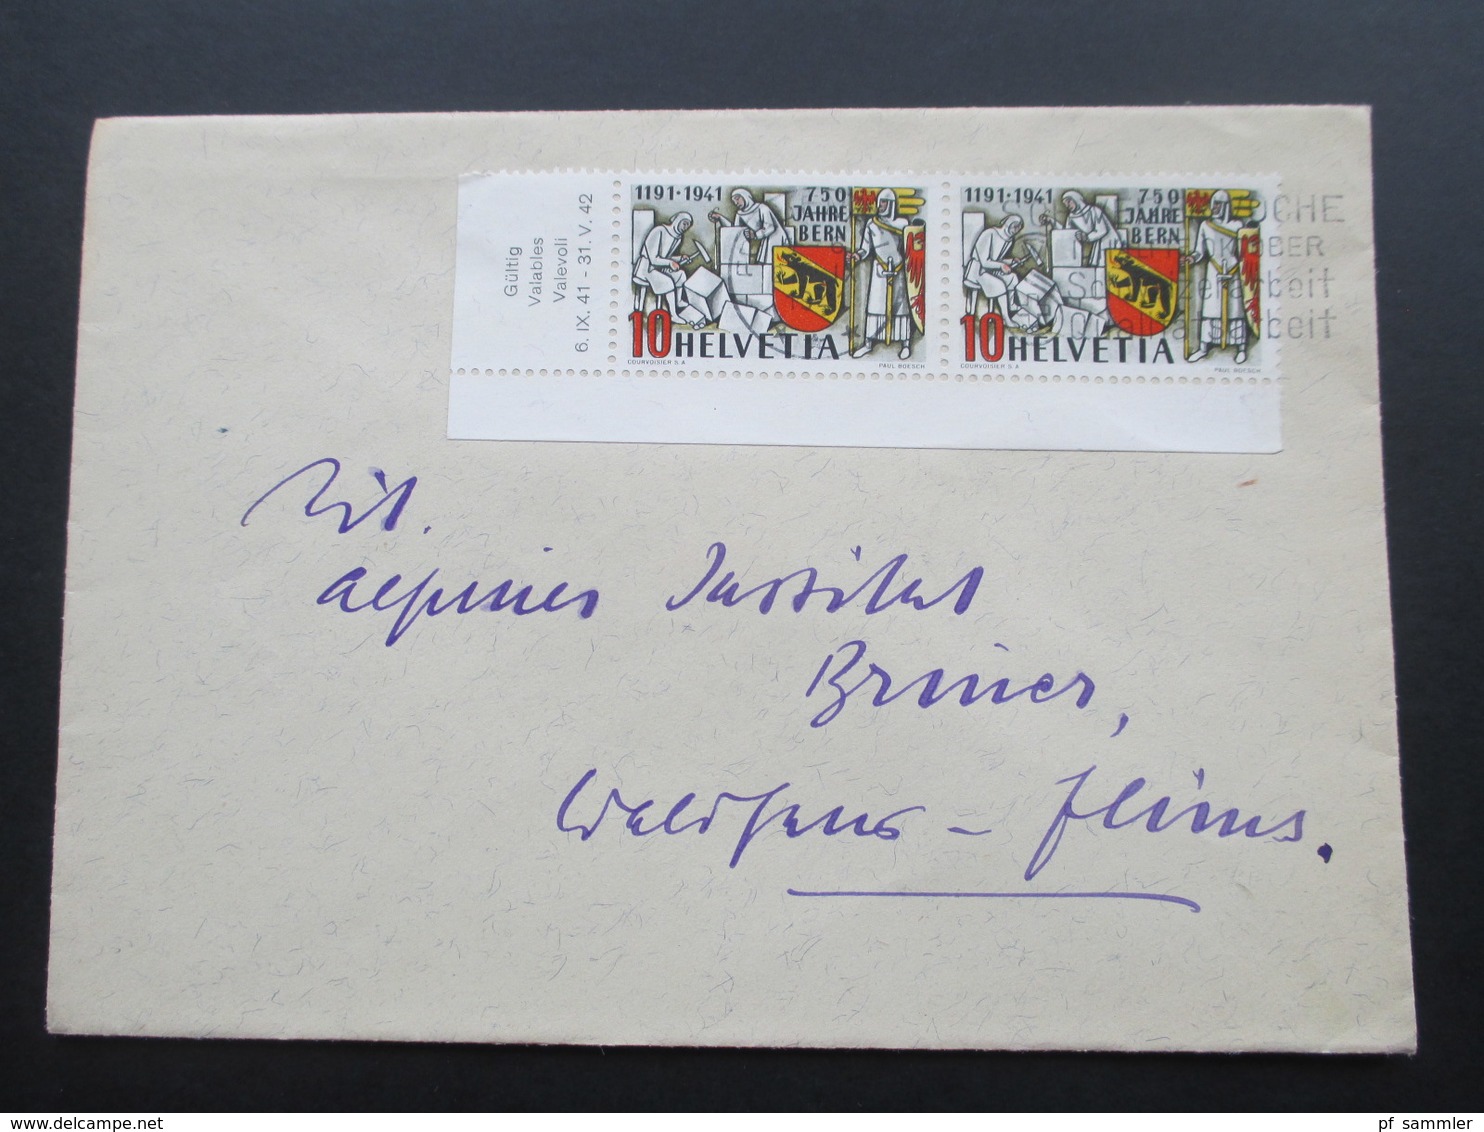 Gültig
Valables
Valevoli
6. IX. 41 - 31. V. 42
1191·1941 750 JAHRE BERN
10 HELVETIA
COURVOISIER S A PAUL BOESCH
1191·1941 750 JAHRE BERN
10 HELVETIA
COURVOISIER S A PAUL BOESCH
OCHE
OBER
arbeit
Qualitätsarbeit
Tit.
alpines Institut
Briner,
Waldhaus - Flims.
pf_sammler